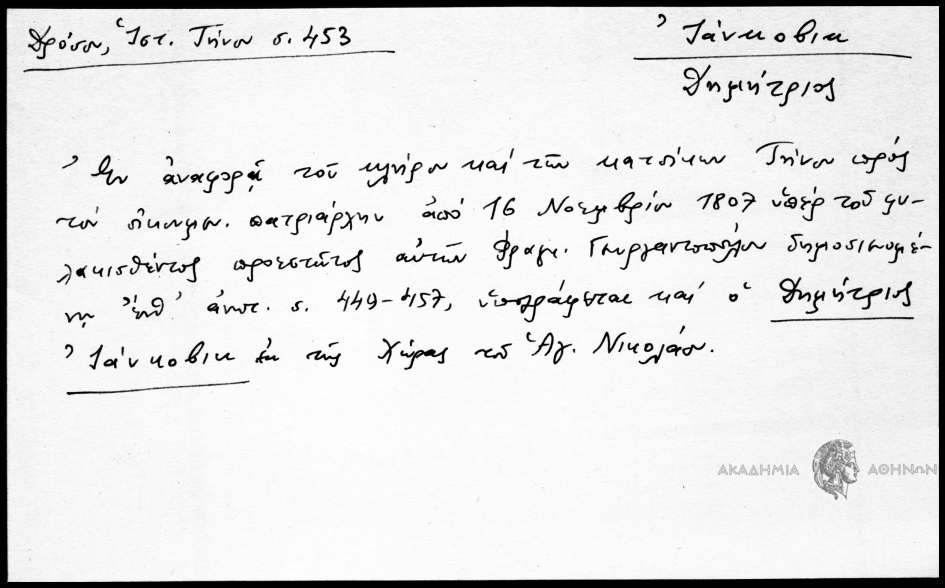 Δρόσου, Ἱστ. Τήνου σ. 453
Ἰάνκοβικ
Δημήτριος
Ἐν ἀναφορᾷ τοῦ κλήρου καὶ τῶν κατοίκων Τήνου πρός
τόν οἰκουμεν. πατριάρχην ἀπό 16 Νοεμβρίου 1807 ὑπέρ τοῦ φυ-
λακισθέντος προεστῶτος αὐτῶν Φραγκ. δημοσιευομέ-
νῃ ἀνωτ. σ. 449-457, ὑπογράφεται καί ὁ Δημήτριος
Ἰάνκοβικ ἐκ τῆς Χώρας τοῦ Ἁγ. Νικολάου.
ΑΚΑΔΗΜΙΑ ΑΘΗΝΩΝ